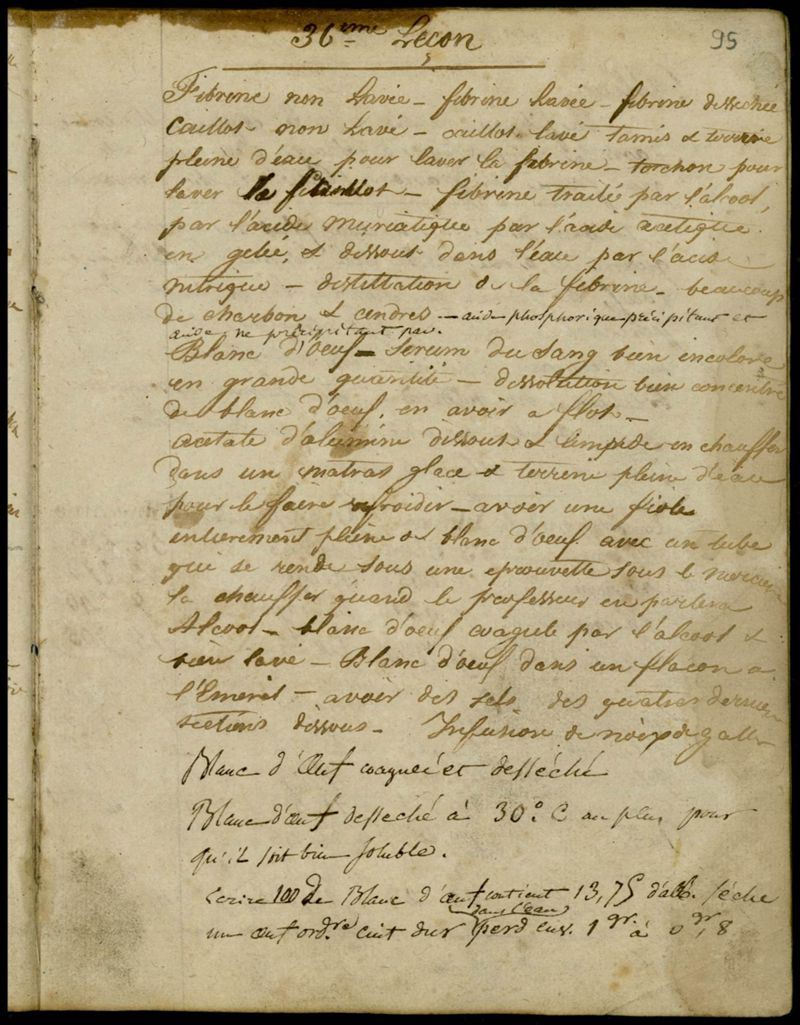 36eme Leçon
95
Fibrine non Lavée - fibrine Lavée - fibrine desséchée
Caillot non Lavé - caillot lavé tamis & terrine
pleine d'eau pour laver la fibrine - torchon pour
laver le caillot - fibrine traité par l'alcool,
par l'acide muriatique par l'acide acetique
en gelée, & dissout dans l'eau par l'acide
nitrique - distillation de la fibrine - beaucoup
de charbon & cendres - acide phosphorique précipitant et
acide ne précipitant pas.
Blanc d'oeuf - Serum du Sang bien incolore
en grande quantité - dissolution bien concentré
de blanc d'oeuf, en avoir a flot -
acetate d'alumine dissout & limpide en chauffer
dans un matras glace & terrine pleine d'eau
pour le faire refroidir - avoir une fiole
entierement pleine de blanc d'oeuf avec un tube
qui se rende sous une eprouvette sous le mercure
la chauffer quand le professeur en parlera
Alcool - blanc d'oeuf coagulé par l'alcool &
bien lavé - Blanc d'oeuf dans un flacon a
l'Emeril - avoir des sels des quatres derniere
sections dissous - Infusion de noix de galle
Blanc d'Œuf coagulé et desséché
Blanc d'œuf desseché à 30° C au plus pour
qu'il soit bien soluble.
Ecrire 100 de Blanc d'œuf contient 13,75 d'alb. séche
un œuf ord.re cuit dur dans l'eau perd env. 1 gr. à 0 gr, 8